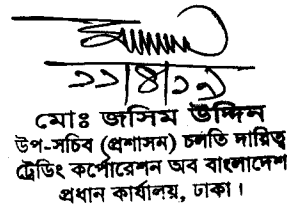 ১১/৪/১৯
মোঃ জসিম উদ্দিন
উপ-সচিব (প্রশাসন) চলতি দায়িত্ব
ট্রেডিং কর্পোরেশন অব বাংলাদেশ
প্রধান কার্যালয়, ঢাকা।